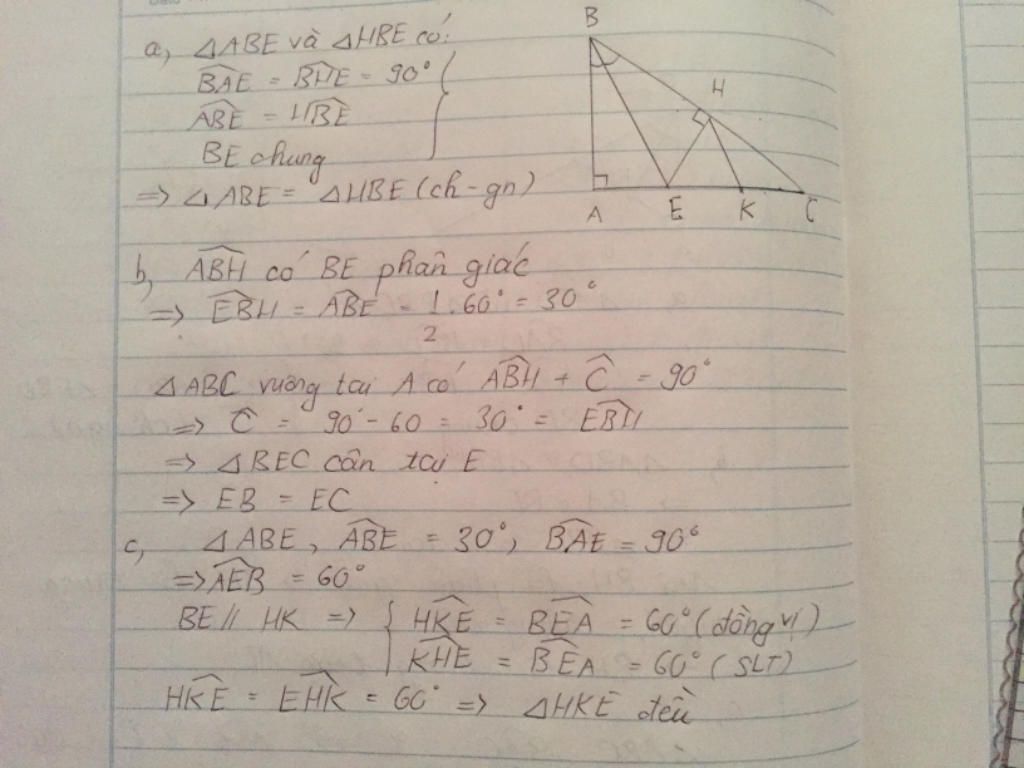 a, △ABE và △HBE có:
B̂AE = B̂HE = 90°
ÂBE = ĤBE
BE chung
=> △ABE = △HBE (ch-gn)
B
H
A E K C
b, ÂBH có BE phân giác
=> ÊBH = ÂBE = 1/2 . 60° = 30°
△ABC vuông tại A có ÂBH + Ĉ = 90°
=> Ĉ = 90° - 60 = 30° = ÊBH
=> △BEC cân tại E
=> EB = EC
c, △ABE, ÂBE = 30°, B̂AE = 90°
=> ÂEB = 60°
BE // HK => { ĤKE = B̂EA = 60° (đồng vị)
K̂HE = B̂EA = 60° (SLT)
ĤKE = ÊHK = 60° => △HKE đều